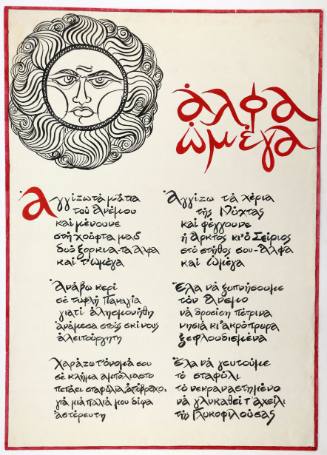 ἀλφα
ὠμέγα
Ἀγγίζω τὰ μάτια
τοῦ ἀνέμου
καὶ μένουνε
στὴ χούφτα μου
δυὸ ξόρκια τὸ ἄλφα
καὶ τ' ὠμέγα
Ἀνάβω κερὶ
σὲ τυφλὴ Παναγία
γιατί ἀλησμονήθη
ἀνάμεσα στοὺς σκίνους
ἀλειτούργητη
Χαράζω τ' ὄνομά σου
σὲ κλῆμα ἀμπόλιαστο
πετάει σταφύλια
γιὰ μιὰ παλιά μου δίψα
ἀστέρευτη
Ἀγγίζω τὰ χέρια
τῆς Νύχτας
καὶ φέγγουνε
ἡ Ἄρκτος κι ὁ Σείριος
στὸ στῆθος σου - ἄλφα
καὶ ὠμέγα
Ἔλα νὰ ξυπνήσουμε
τὸν ἄνεμο
νὰ δροσίσῃ πέτρινα
νησιὰ κι ἀκρόπρωρα
ξεφλουδισμένα
Ἔλα νὰ γευτοῦμε
τὸ σταφύλι
τὸ νεκραναστημένο
νὰ γλυκαθεῖ τ' ἀχείλι
τῆς Γλυκοφιλούσας